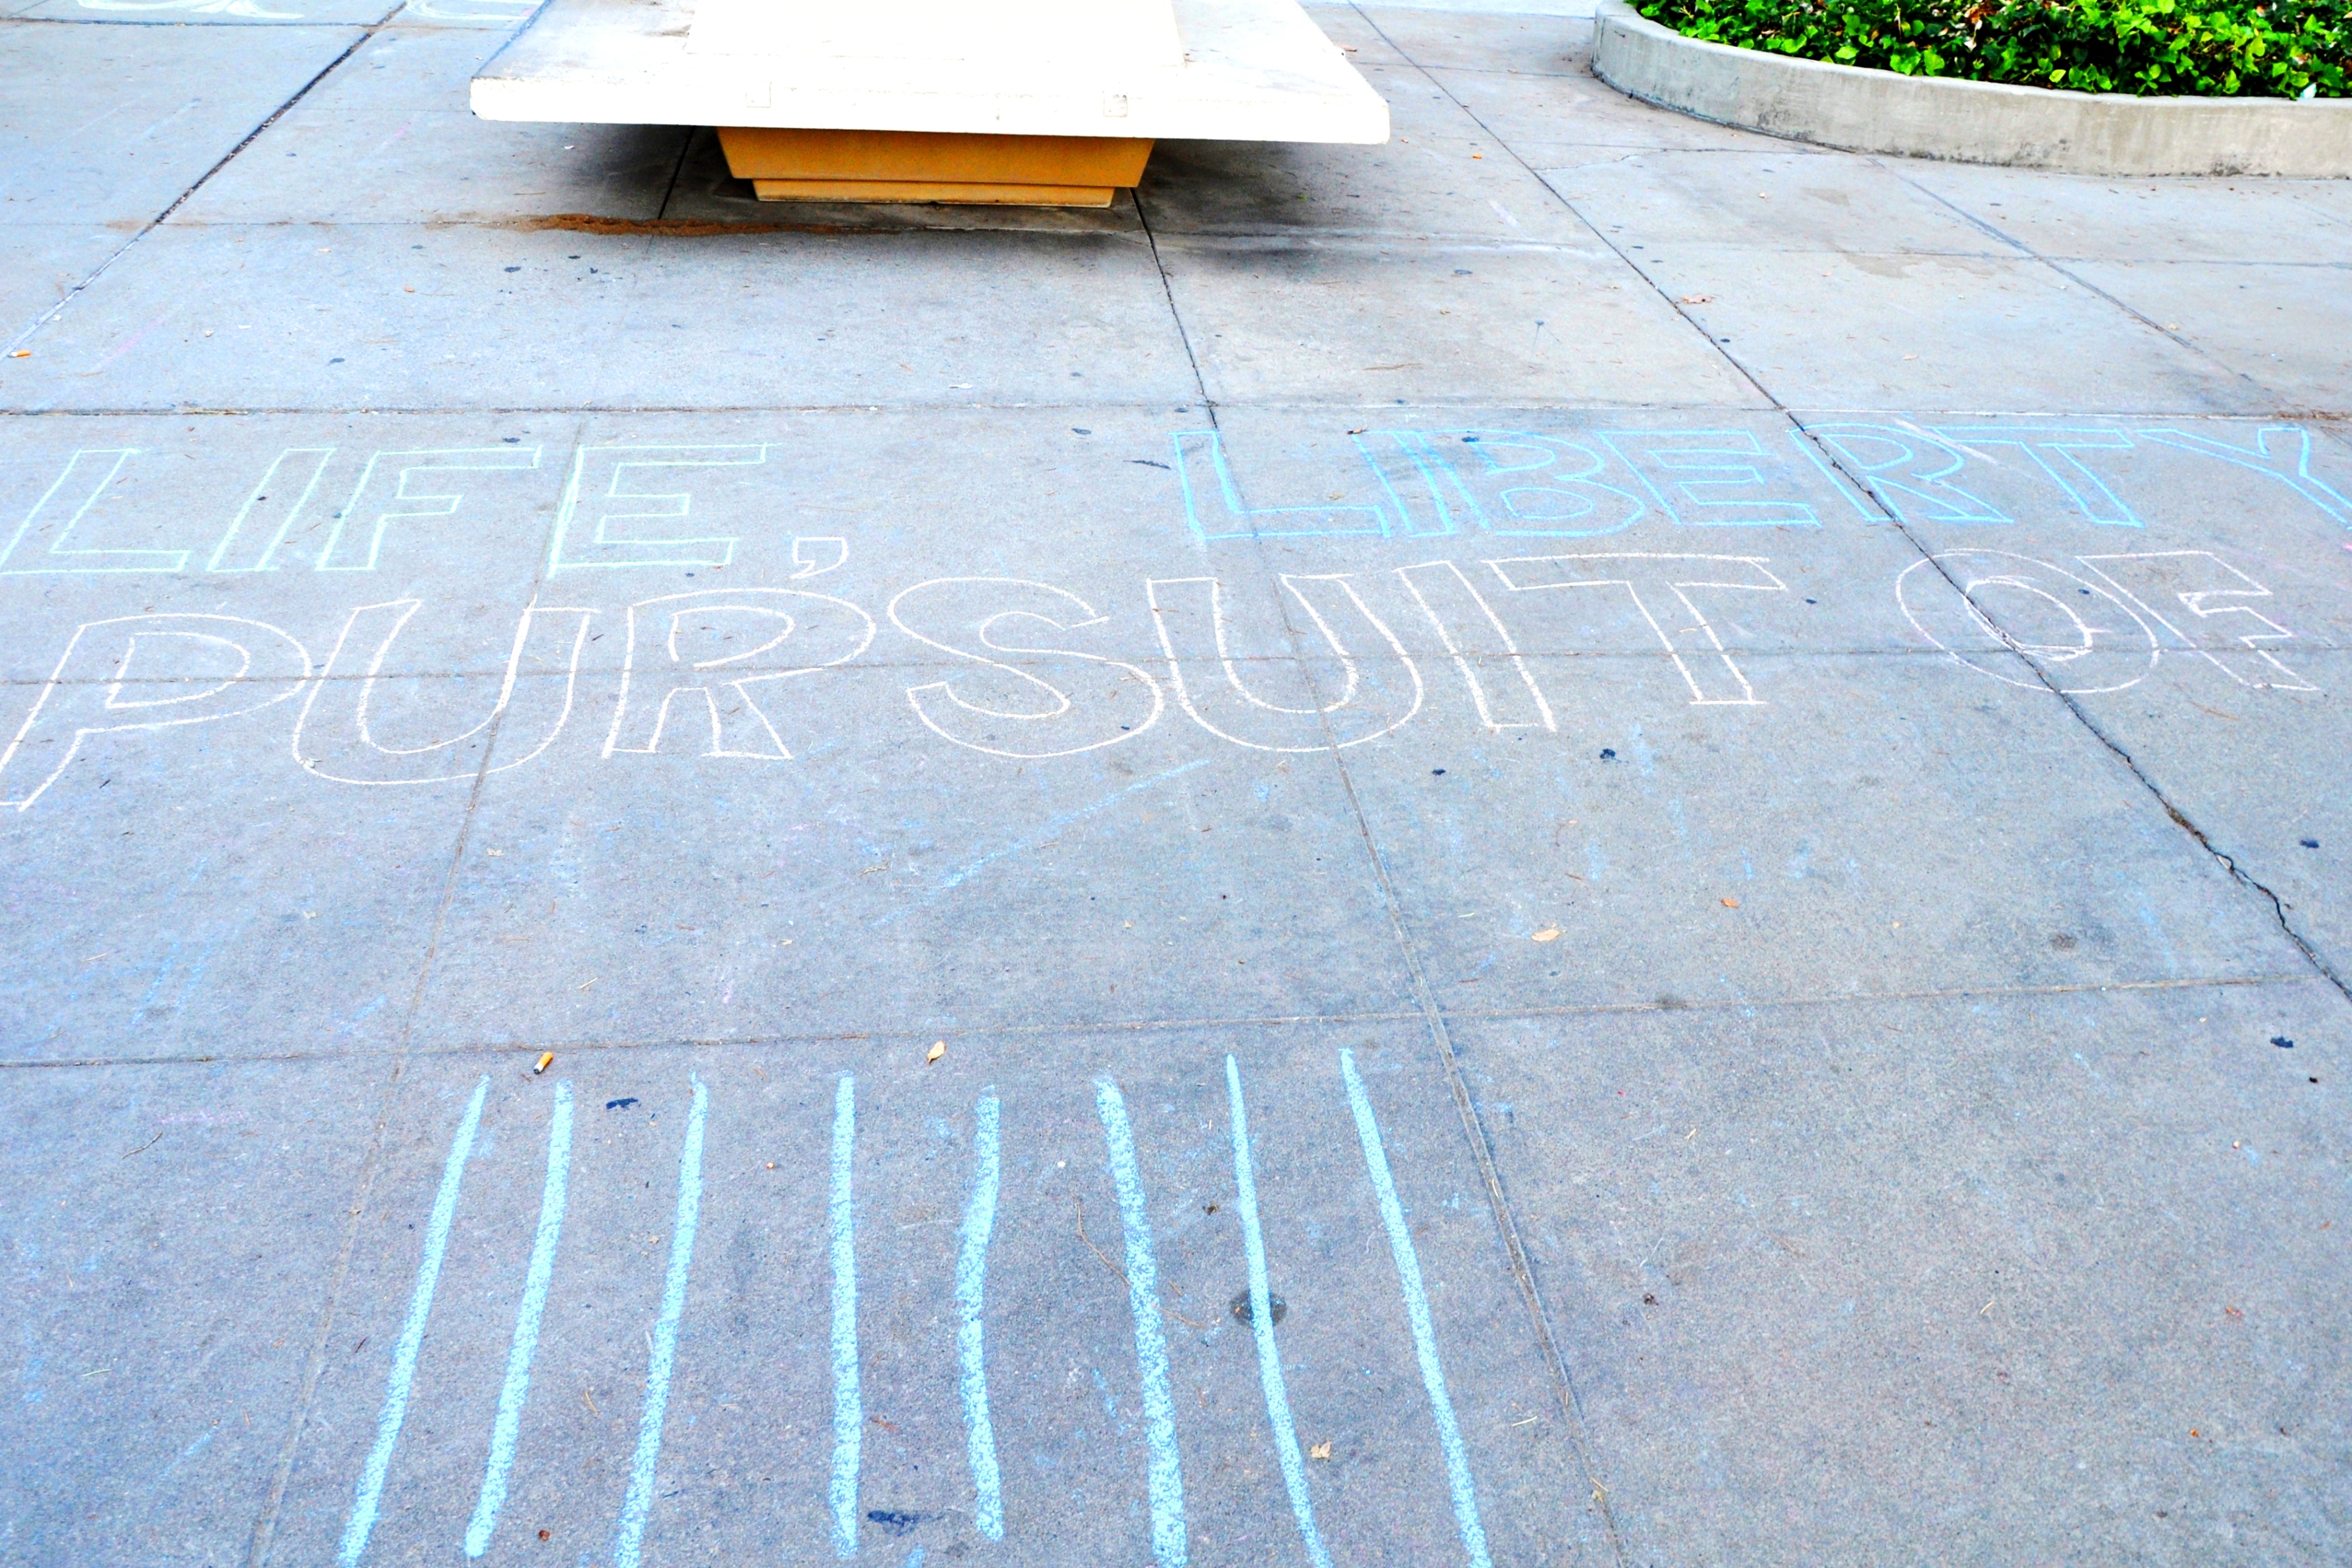 LIFE, LIBERTY
PURSUIT OF